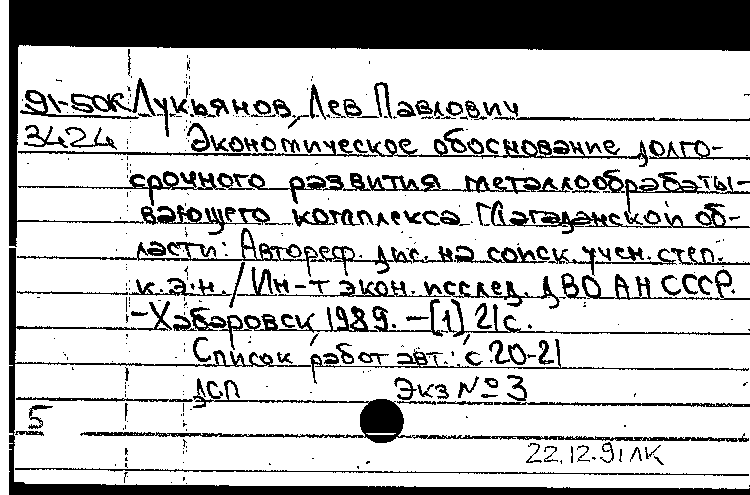 91-50К Лукьянов, Лев Павлович
3424 Экономическое обоснование долго-
срочного развития металлообрабаты-
вающего комплекса Магаданской об-
ласти: Автореф. дис. на соиск. учен. степ.
к.э.н. / Ин-т экон. исслед. ДВО АН СССР.
-Хабаровск, 1989. -[1] 21с.
Список работ авт.: с 20-21
ДСП Экз № 3
5
22.12.91 ЛК